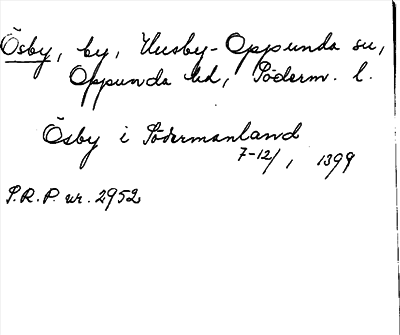 Ösby, by, Husby-Oppunda sn,
Oppunda hd, Söderm. l.
Ösby i Södermanland
7-12/, 1399
S.R.P. nr. 2952